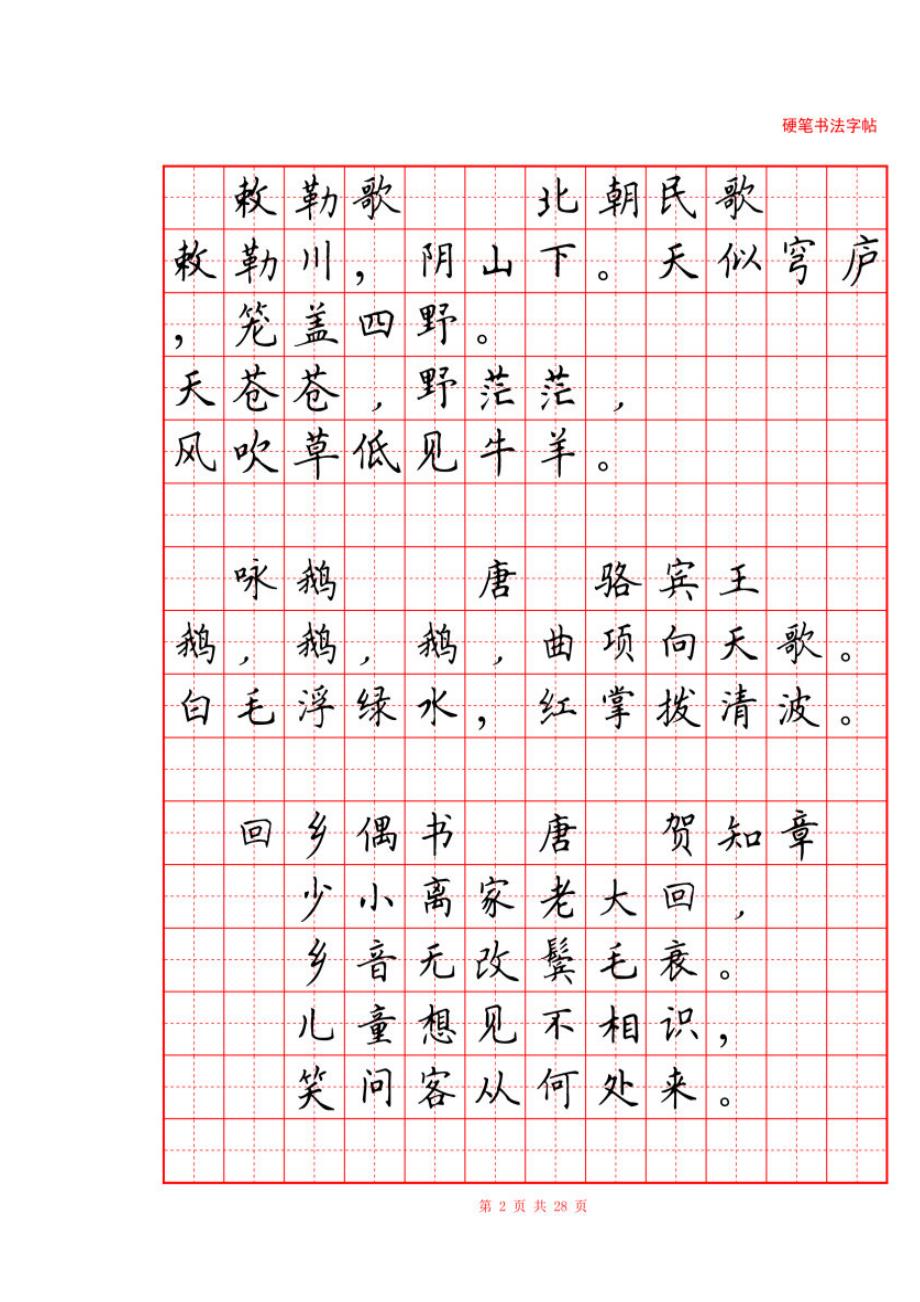 硬笔书法字帖
敕勒歌 北朝民歌
敕勒川，阴山下。天似穹庐
，笼盖四野。
天苍苍，野茫茫，
风吹草低见牛羊。
咏鹅 唐 骆宾王
鹅，鹅，鹅，曲项向天歌。
白毛浮绿水，红掌拨清波。
回乡偶书 唐 贺知章
少小离家老大回，
乡音无改鬓毛衰。
儿童想见不相识，
笑问客从何处来。
第 2 页 共 28 页